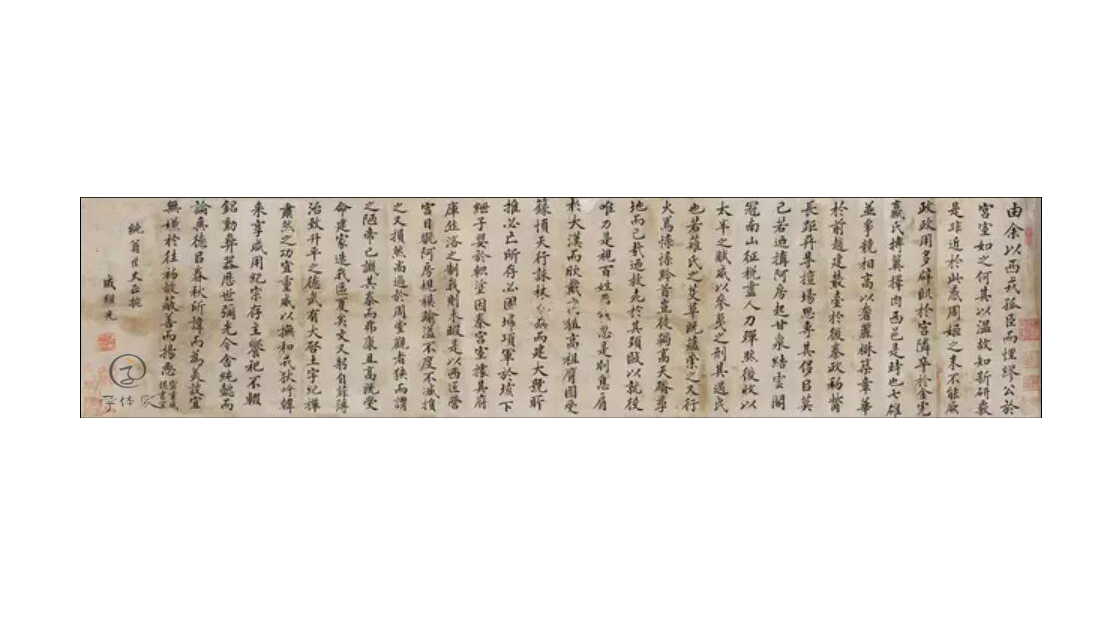 由余以西戎孤臣而悝繆公於
宮室如之何其以溫故知新研覈
是非近於此惑周姬之末不能厥
政政用多僻始於宮隣卒於金虎
嬴氏搏翼擇肉西邑是時也七雄
並爭競相高以奢麗楚築章華
於前趙建叢臺於後秦政利觜
長距終得擅場思專其侈以莫
己若迺搆阿房起甘泉結雲閣
冠南山征稅盡人力殫然後收以
太半之賦威以參夷之刑其遇民
也若薙氏之芟草既蘊崇之又行
火焉慄慄黔首豈徒跼高天蹐厚
地而已哉迺救死於其頸敺以就役
唯力是視百姓忍是用息肩
於大漢而欣戴高祖高祖膺圖受
籙順天行誅杖而建大號所
推必亡所存必固掃項軍於垓下
紲子嬰於軹塗因秦宮室據其府
庫作洛之制我則未暇是以西匠營
宮目翫阿房規模踰溢不度不臧損
之又損然尚過於周堂觀者狹而謂
之陋帝已譏其泰而弗康且高既受
命建家造我區夏矣文又躬自菲薄
治致升平之德武有大啓土宇紀禪
肅然之功宣重威以撫和戎狄呼韓
來享咸用紀宗存主饗祀不輟
銘勳彝器歷世彌光今舍純懿而
論爽德以春秋所諱而為美談宜
無嫌於往初故蔽善而揚惡
純翁世丈正
字体家